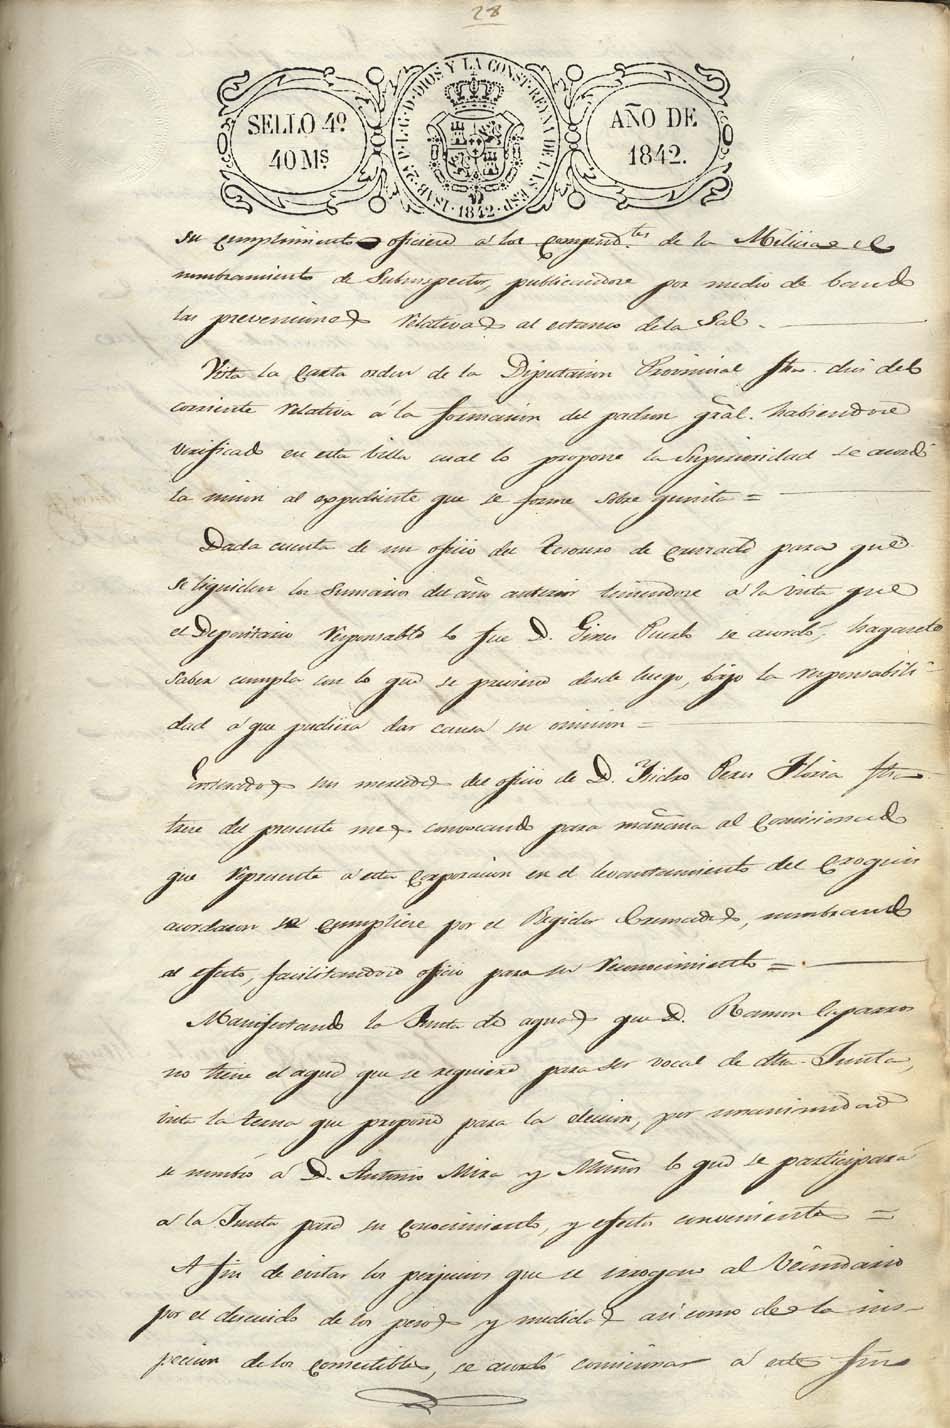 28
SELLO 4º
40 Mˢ
ISAB. 2ª P. L. G. D. DIOS Y LA CONST. REYNA DE LAS ESP.
1842
AÑO DE
1842.
su cumplimiento oficiese á los Comand.tes de la Milicia el
nombramiento de Subinspector, publicandose por medio de bando
las prevenciones relativas al estanco de la Sal.
Vista la Carta orden de la Diputacion Provincial fha. dies del
corriente relativa á la formacion del padron gral. habiendose
verificado en esta Villa cual lo propone la Superioridad se acordó
la union al expediente que se forme sobre quinta =
Dada cuenta de un oficio del tesorero de Cruzada para que
se liquiden los Sumarios del año anterior teniendose á la vista que
el Depositario responsable lo fue D. Gines Puerto se acordó, hagasele
saber cumpla con lo que se previene desde luego, bajo la responsabili-
dad á que pudiera dar causa su omision =
Enterados sus mercedes del oficio de D. Ysidro Peres fha
trece del presente mes convocando para mañana al Comisionado
que represente á esta Corporacion en el levantamiento del Croquis
acordaron se cumpliere por el Regidor nombrando
al efecto, facilitandose oficio para su reconocimiento =
Manifestando la Junta de aguas que D. Ramon Caparros
no tiene el agua que se requiere para ser vocal de dha. Junta,
vista la terna que propone para la eleccion, por unanimidad
se nombró á D. Antonio Mira y Muños lo que se participará
á la Junta para su conocimiento, y efectos convenientes =
A fin de evitar los perjuicios que se irrogan al Vecindario
por el descuido de los pesos y medidas asi como de la ins-
peccion de los Comestibles, se acordó comisionar á este fin